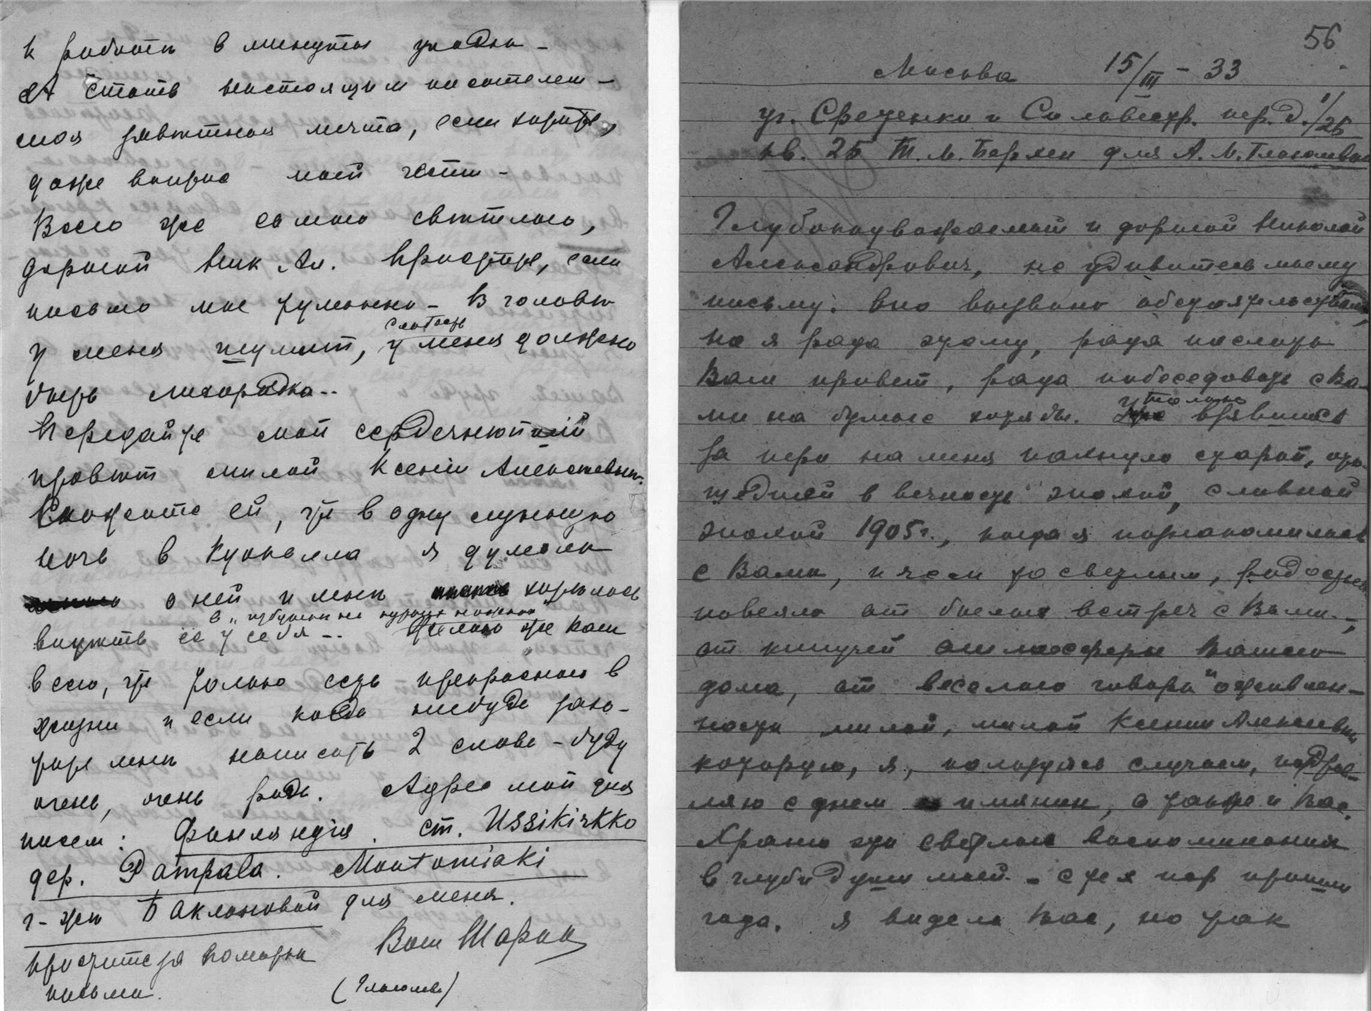 к работѣ в минуты упадка –
А стать настоящим писателем –
моя завѣтная мечта, если хотите,
даже вопрос моей чести –
Всего же самого свѣтлого,
дорогой Ник. Ал. Простите, если
письмо мое туманно – В головѣ
у меня шумит, у меня должно
быть лихорадка..
Передайте мой сердечнѣйший
привѣт милой Ксеніи Алексѣевнѣ.
Скажите ей, что в одну лунную
ночь в Куоккала я думала
о ней и мнѣ хотѣлось
видѣть ее у себя –..
в „избушкѣ на курьих ножках"
всего, что только есть прекрасного в
жизни и если когда нибудь
мнѣ написать 2 слова – буду
очень, очень рада. Адрес мой для
писем: Финляндія. ст. Ussikirkko
дер. Pampala. Montomiäki
г-жѣ Баклановой для меня.
Простите за помарки Ваш Мария
письма. (Глаголева)
56
Москва 15/III – 33
уг. Сретенки и Селиверстр. пер. д. 1/26
кв. 25 Т. М. Берлен для А. М. Глаголевой
Глубокоуважаемый и дорогой Николай
Александрович, не удивитесь моему
письму. Оно вызвано обстоятельствами,
но я рада этому, рада послать
Вам привет, рада побеседовать с Ва-
ми на бумаге хотя бы. Только взявшись
за перо на меня пахнуло старой, ото-
шедшей в вечность эпохой, славной
эпохой 1905 г., когда я познакомилась
с Вами, и чем то светлым, радостным
повеяло от былых встреч с Вами –,
от кипучей атмосферы Вашего
дома, от веселого говора оживлен-
ности милой, милой Ксении Алексеевны
которую, я, пользуясь случаем, поздрав-
ляю с днем имянин, а также и Вас.
Храню эти светлые воспоминания
в глубине души моей – с тех пор прошли
года. Я видела Вас, но так